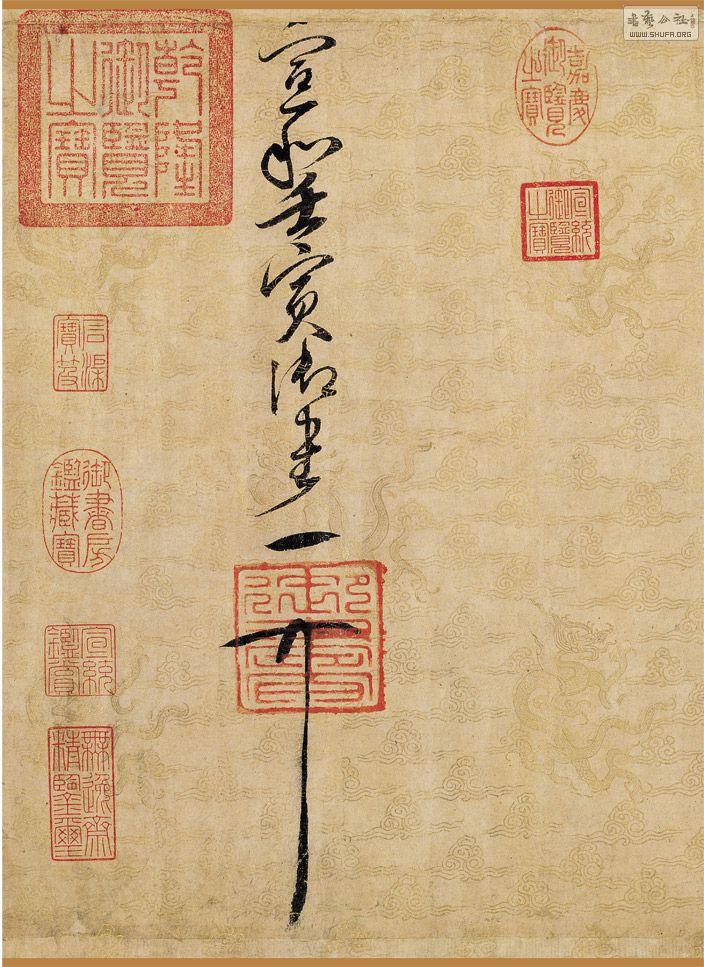 書藝公社
WWW.SHUFA.ORG
嘉慶御覽之寶
宣統御覽之寶
宣和壬寅御書
御書
乾隆御覽之寶
石渠寶笈
御書房鑑藏寶
宣統鑑賞
無逸齋精鑒璽